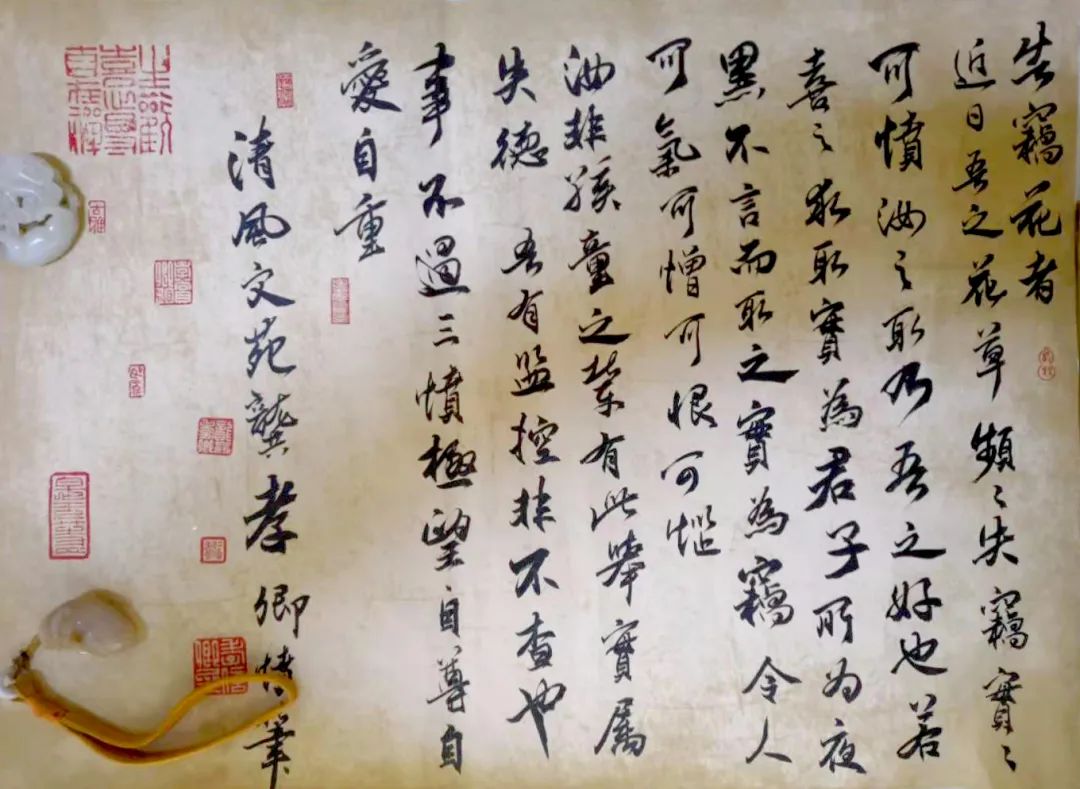 告竊花者
近日吾之花草頻〻失竊實〻
可憤汝之取乃吾之好也若
喜之求取實為君子所為夜
黑不言而取之實為竊令人
可氣可憎可恨可惱
汝非孩童之輩有此舉實屬
失德吾有监控非不查也
事不過三憤極望自尊自
愛自重
清風文苑龔孝卿憤筆